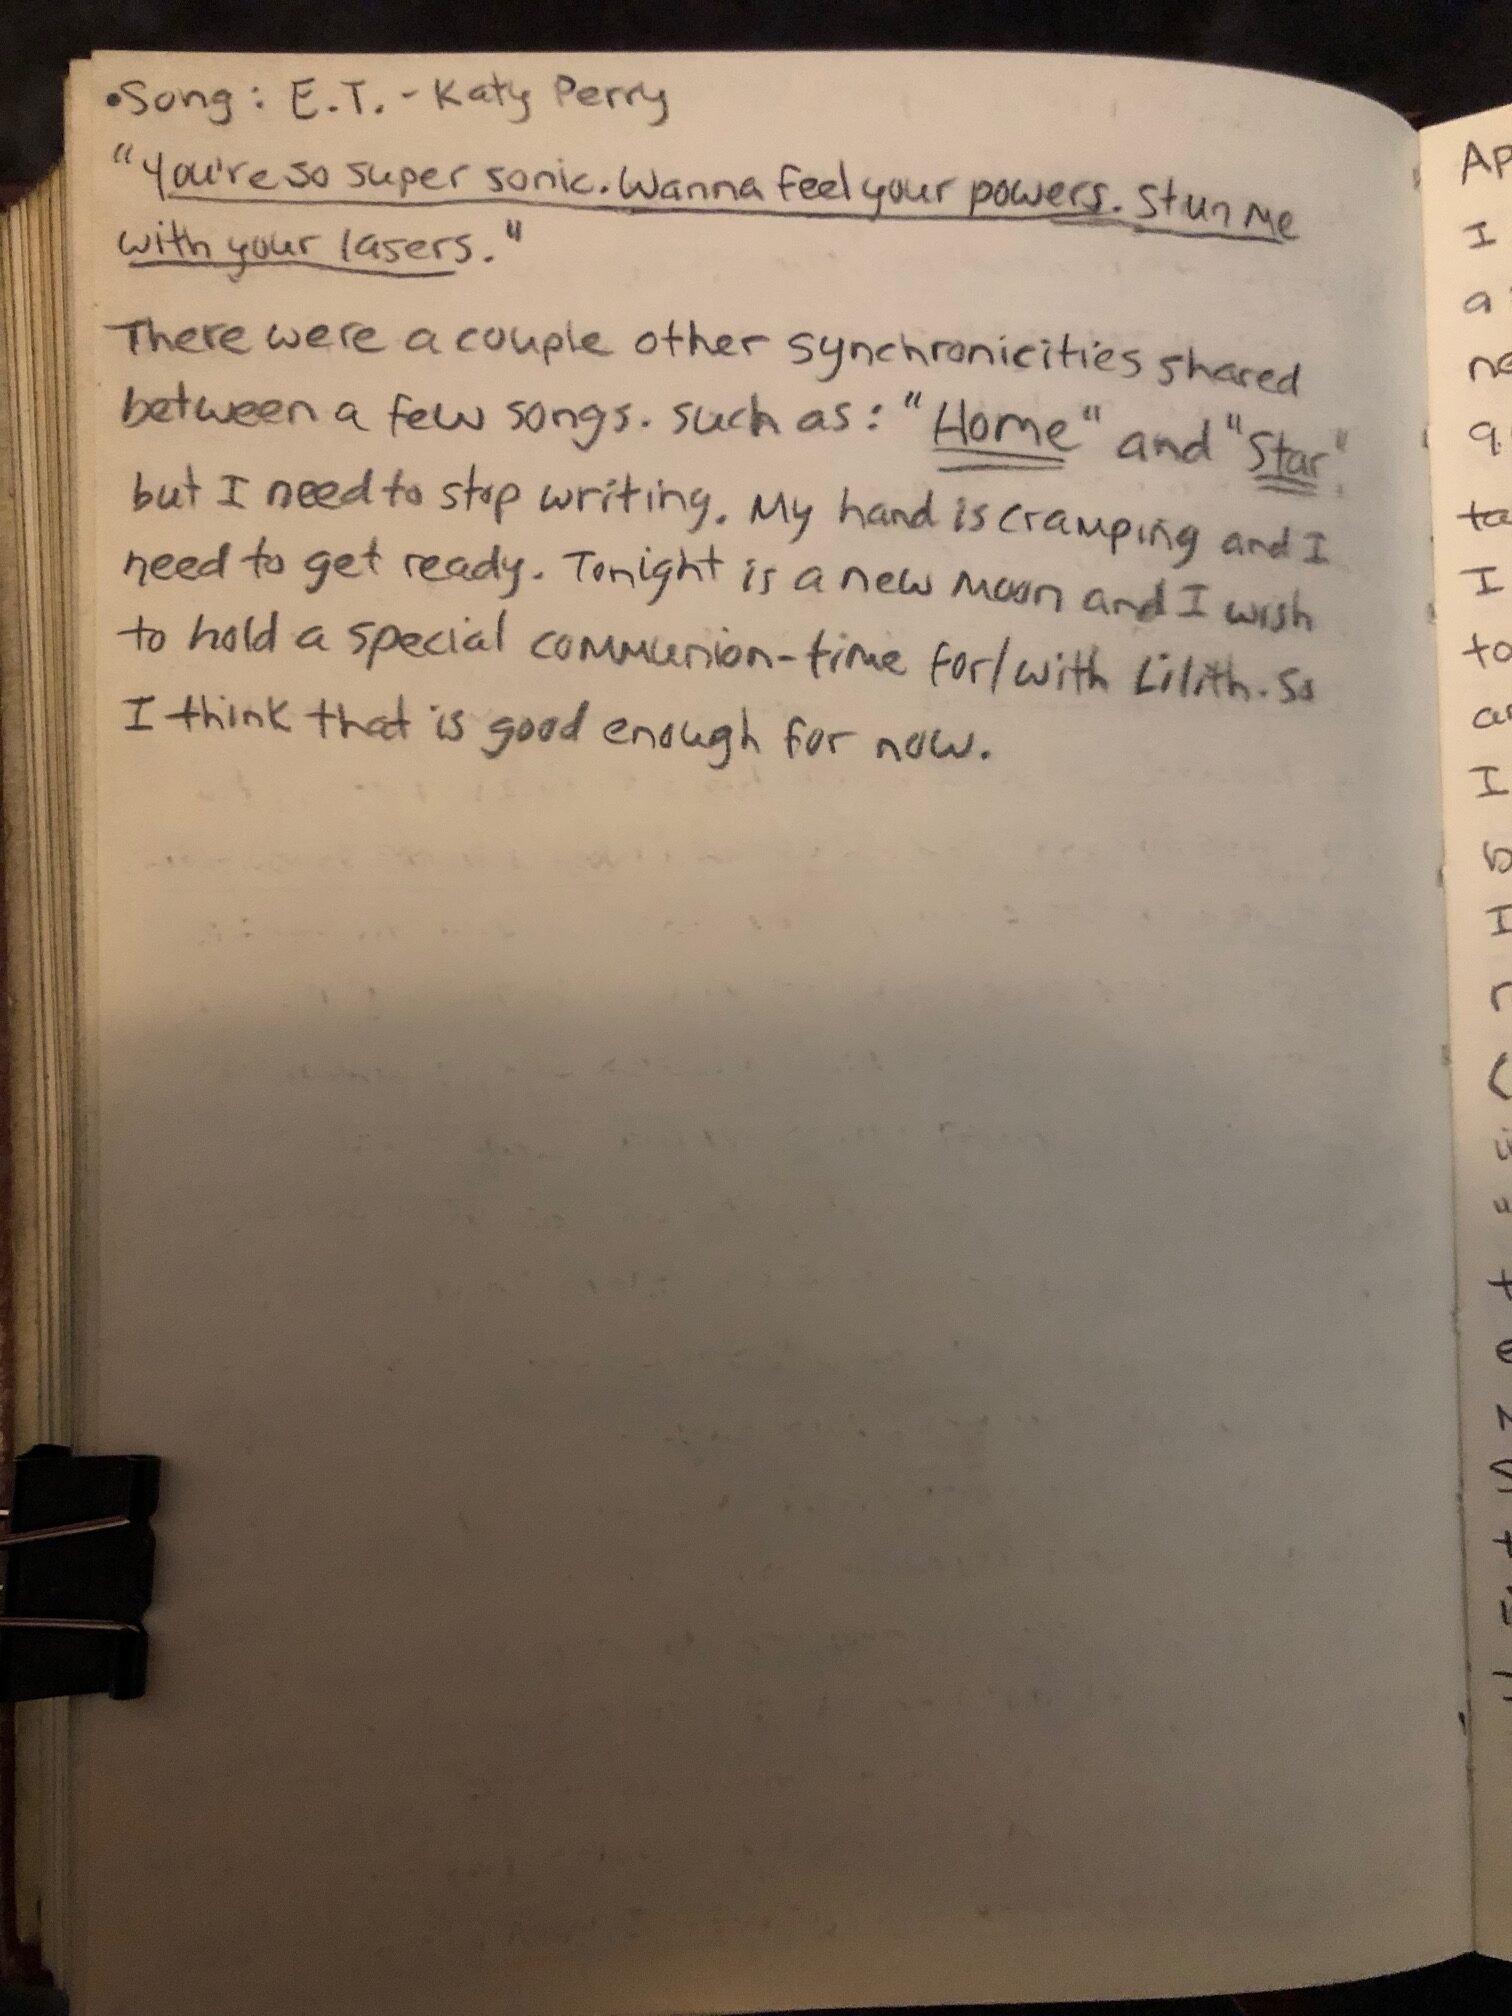 •Song: E.T. - Katy Perry
"You're so super sonic. Wanna feel your powers. Stun me
with your lasers."
There were a couple other synchronicities shared
between a few songs. such as: "Home" and "Star"
but I need to stop writing. My hand is cramping and I
need to get ready. Tonight is a new moon and I wish
to hold a special communion-time for/with Lilith. So
I think that is good enough for now.
I
a
I
to
I